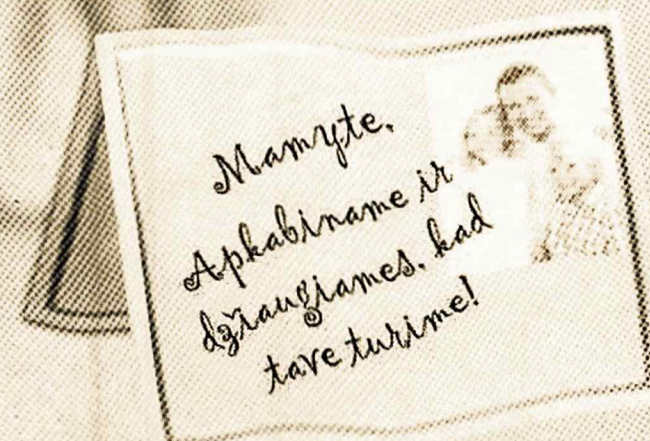 Mamyte,
Apkabiname ir
džiaugiames, kad
tave turime!